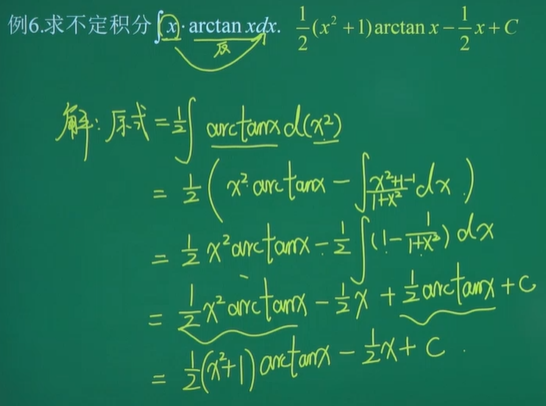 例6.求不定积分∫x·arctan xdx. 1/2(x²+1)arctan x-1/2x+C
反
解:原式=1/2∫arctanx d(x²)
=1/2(x²arctanx-∫(x²+1-1)/(1+x²)dx)
=1/2x²arctanx-1/2∫(1-1/(1+x²))dx
=1/2x²arctanx-1/2x+1/2arctanx+C
=1/2(x²+1)arctanx-1/2x+C.